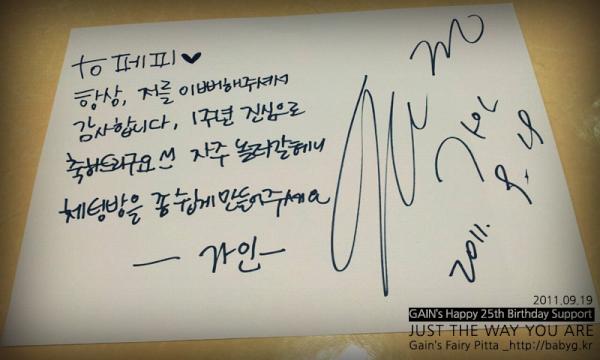 to 페피♥
항상, 저를 이뻐해주셔서
감사합니다, 1주년 진심으로
축하드리구요 ^^ 자주 놀러갈테니
체팅방을 좀 쉽게 만들어주세요
— 가인 —
가인
2011. 9.
2011.09.19
GAIN's Happy 25th Birthday Support
JUST THE WAY YOU ARE
Gain's Fairy Pitta _http://babyg.kr